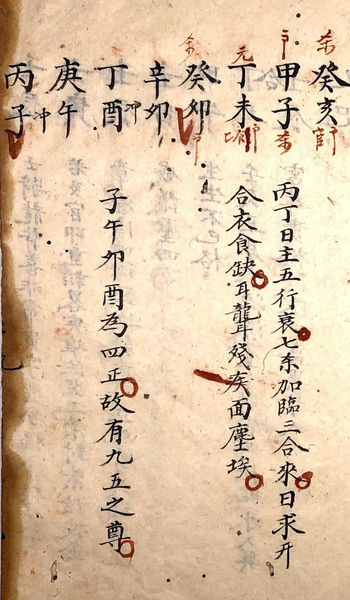 癸亥
甲子
丁未
丙丁日主五行衰七杀加臨三合來日求升
合衣食缺耳聾殘疾面塵埃
癸卯
辛卯
丁酉 冲
庚午
丙子 冲
子午卯酉為四正故有九五之尊